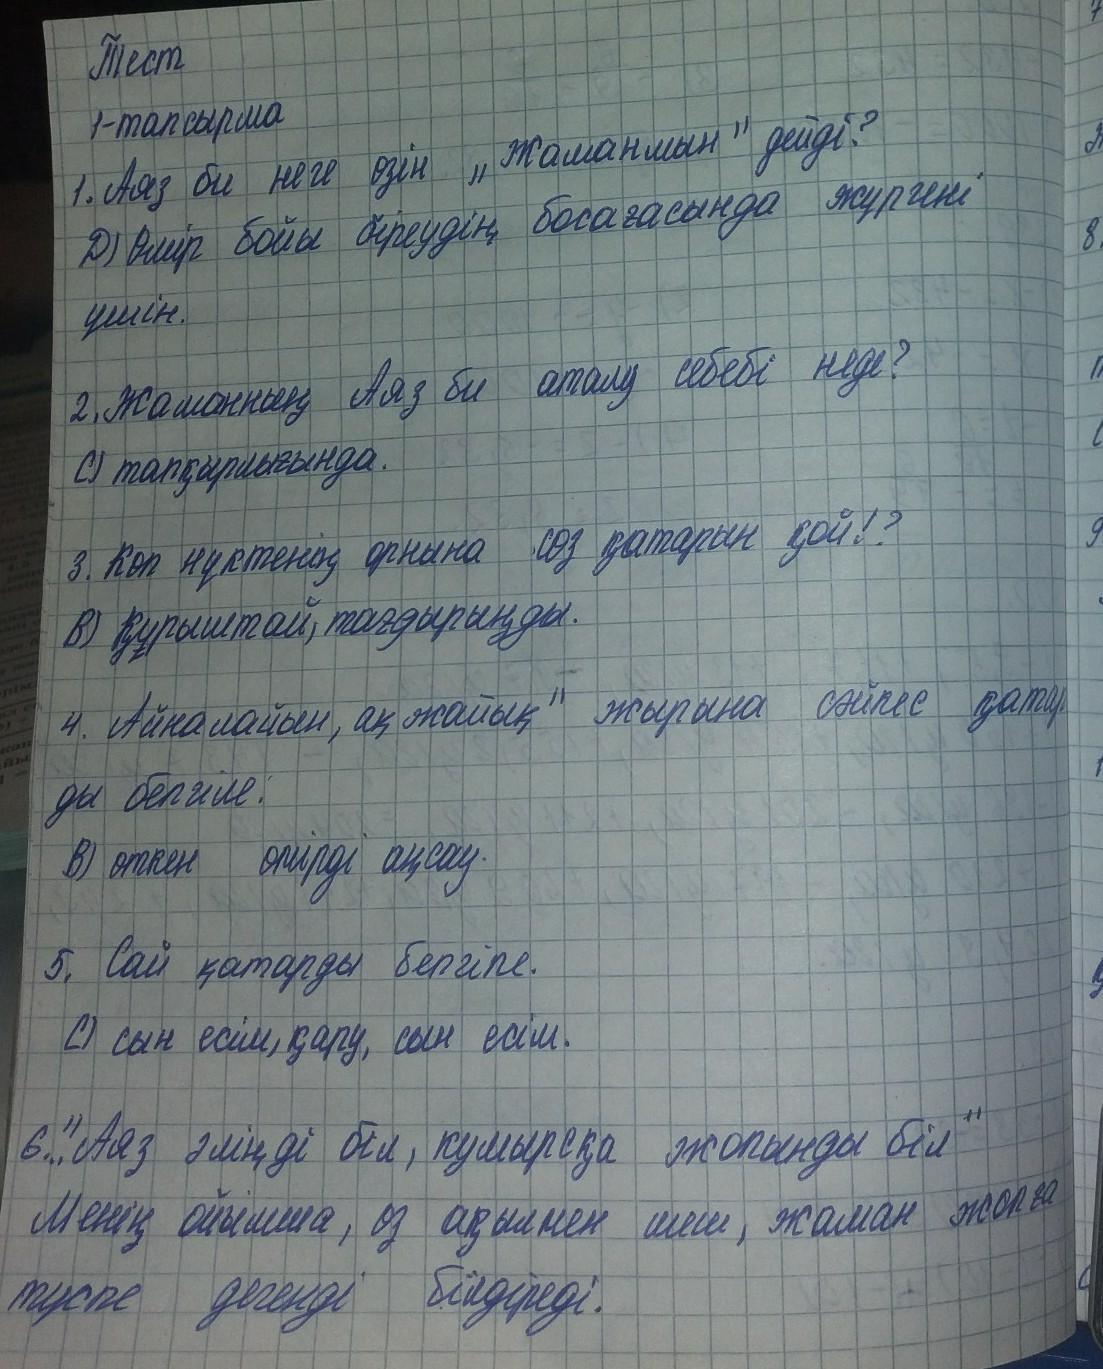 Тест
1-тапсырма
1. Аяз би неге өзін „Жаманмын" дейді?
D) Өмір бойы біреудің босағасында жүргені
үшін.
2. Жаманның Аяз би аталу себебі неде?
C) тапқырлығында.
3. Көп нүктенің орнына сөз қатарын қой!?
B) Құрыштай, тағдырыңды.
4. Айналайын, ақ жайық" жырына сәйкес қатар
ды белгіле:
B) өткен өмірді аңсау.
5. Сай қатарды белгіле.
C) сын есім, қару, сын есім.
6. „Аяз әліңді біл, құмырсқа жолыңды біл"
Менің ойымша, өз ақылмен шеш, жаман жолға
түспе дегенді білдіреді.